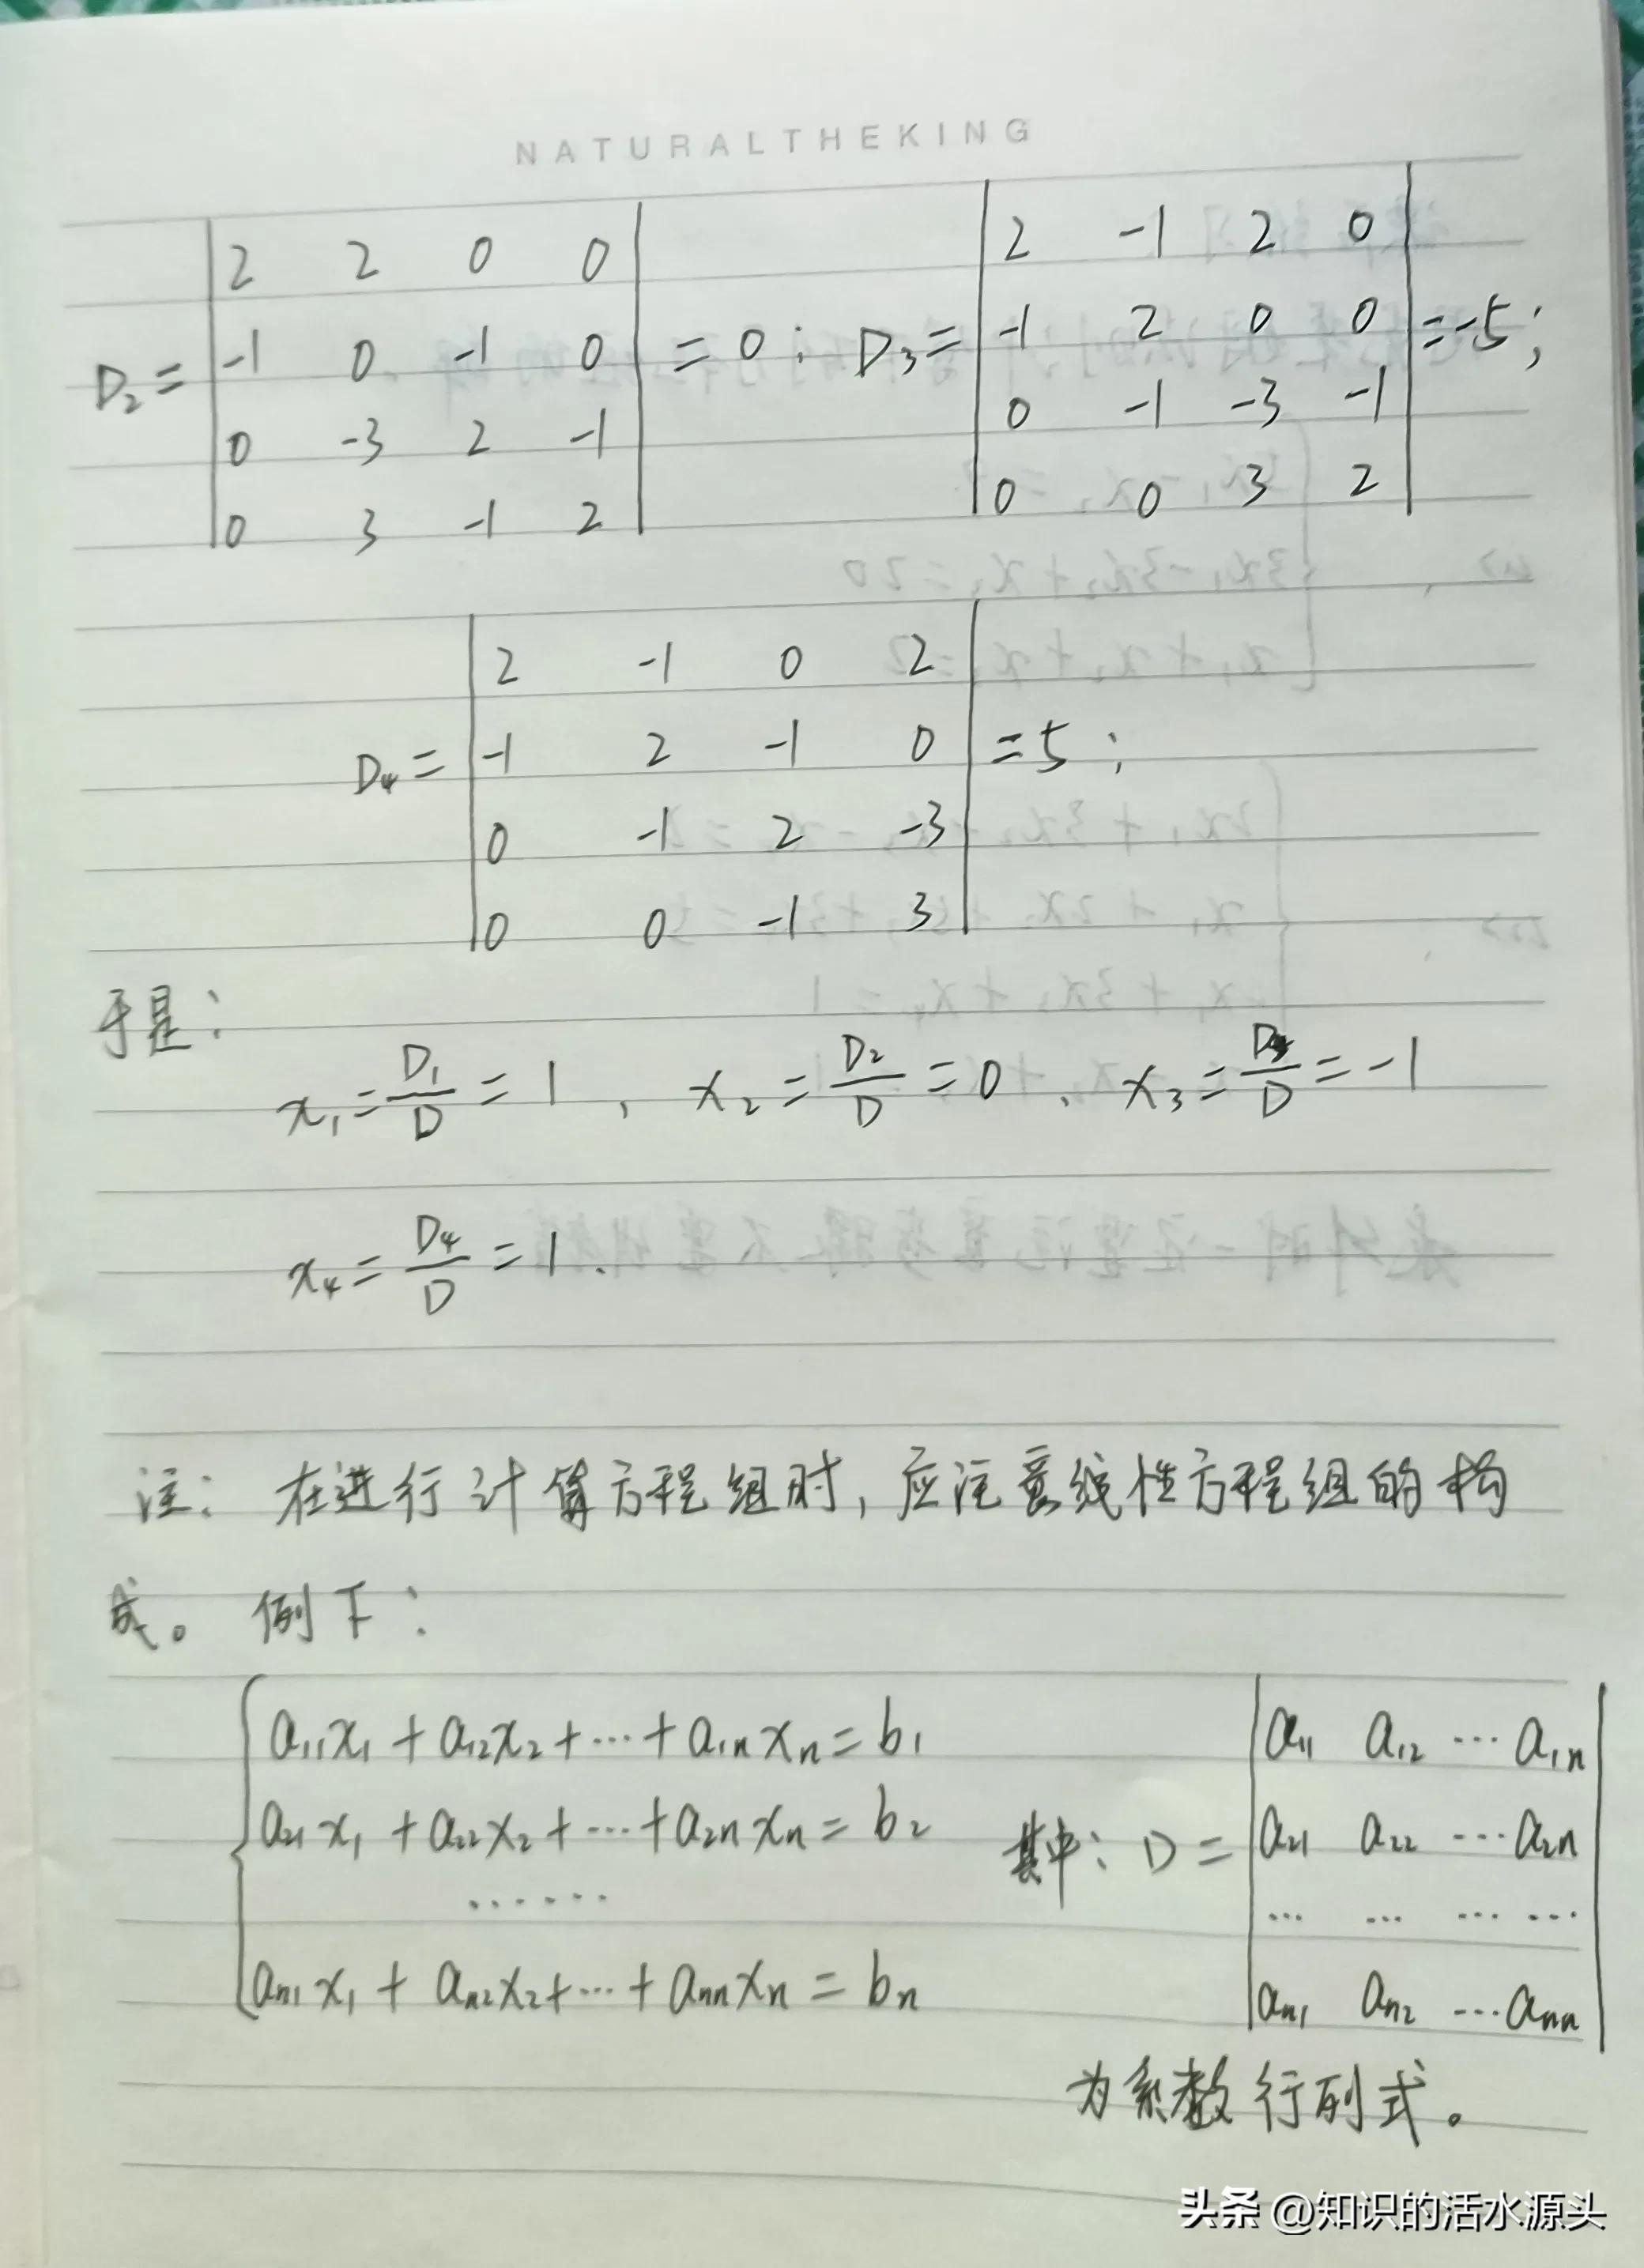 NATURALTHEKING
D₂ = | 2 2 0 0 | = 0 ; D₃ = | 2 -1 2 0 | = -5 ;
| -1 0 -1 0 | | -1 2 0 0 |
| 0 -3 2 -1 | | 0 -1 -3 -1 |
| 0 3 -1 2 | | 0 0 3 2 |
D₄ = | 2 -1 0 2 | = 5 ;
| -1 2 -1 0 |
| 0 -1 2 -3 |
| 0 0 -1 3 |
于是：
x₁ = D₁/D = 1 , x₂ = D₂/D = 0 、 x₃ = D₃/D = -1
x₄ = D₄/D = 1 .
注： 在进行计算方程组时，应注意线性方程组的构
成。 例下：
a₁₁x₁ + a₁₂x₂ + ⋯ + a₁ₙxₙ = b₁
a₂₁x₁ + a₂₂x₂ + ⋯ + a₂ₙxₙ = b₂
⋯⋯
aₙ₁x₁ + aₙ₂x₂ + ⋯ + aₙₙxₙ = bₙ
其中：D = | a₁₁ a₁₂ ⋯ a₁ₙ |
| a₂₁ a₂₂ ⋯ a₂ₙ |
| ⋯ ⋯ ⋯ ⋯ |
| aₙ₁ aₙ₂ ⋯ aₙₙ |
为系数行列式。
头条 @知识的活水源头